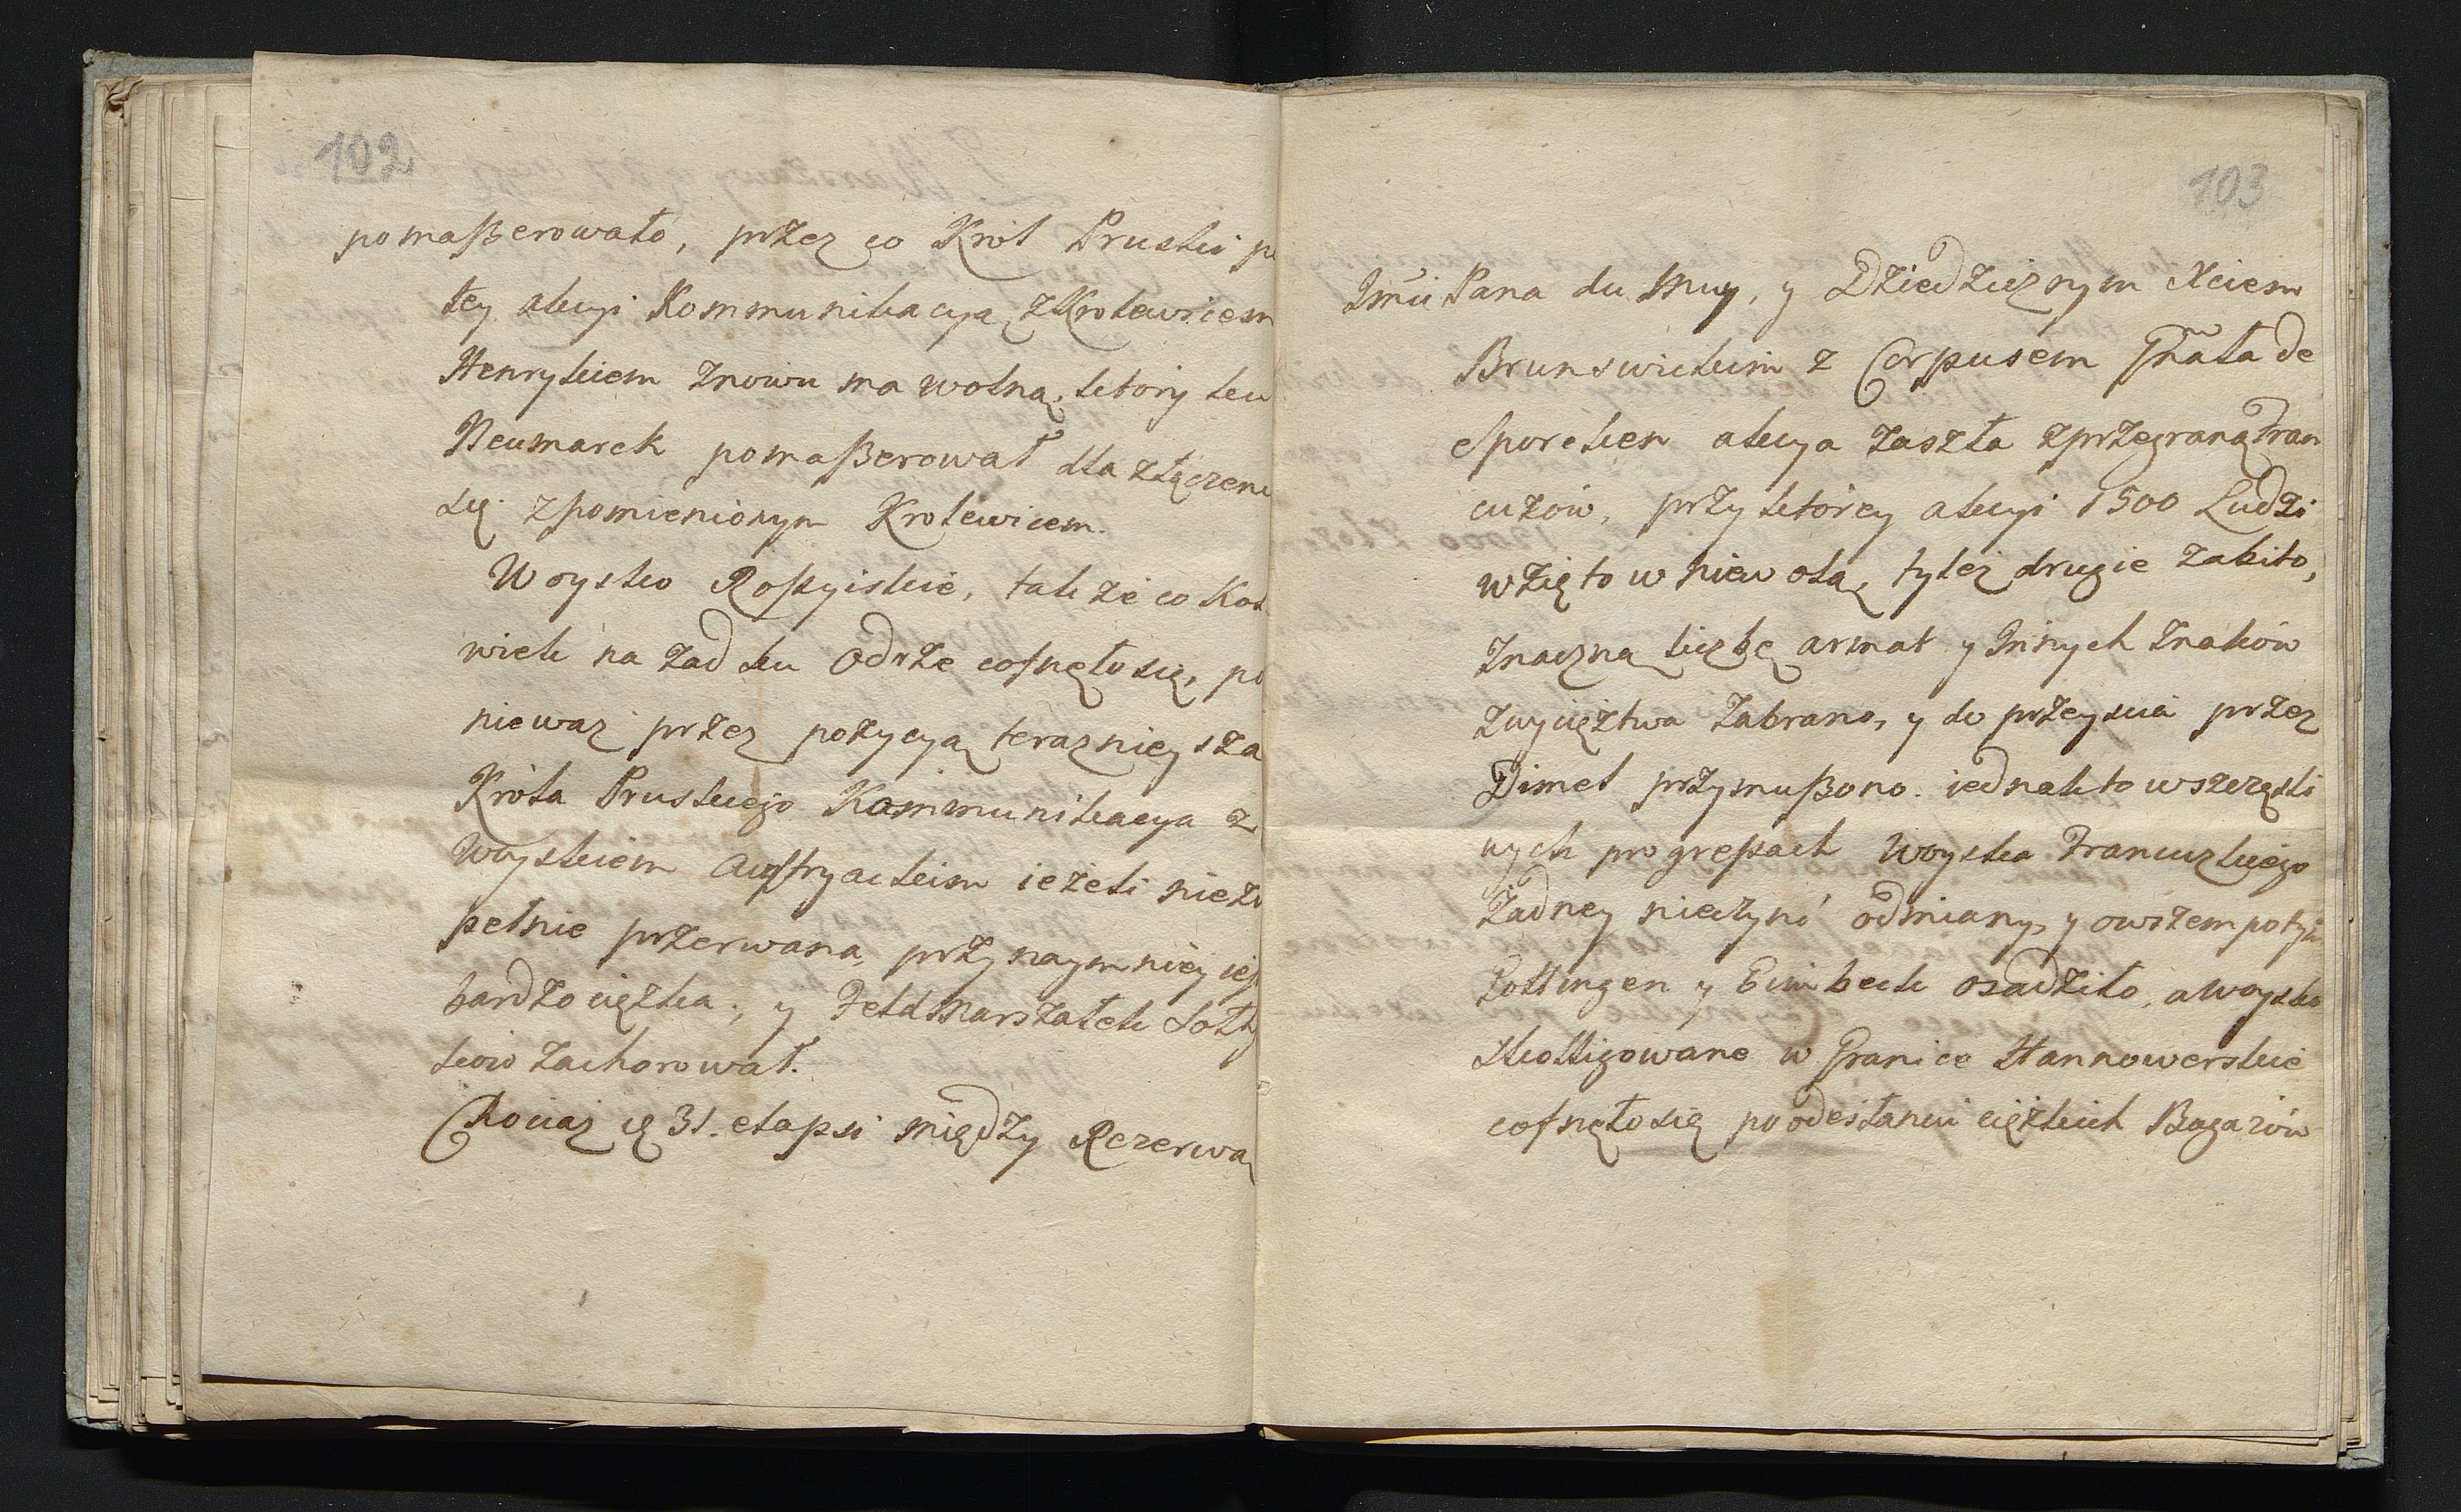 102
pomaßerowało, przez co Krol Pruski po
tey akcyi Kommunikacyą z Krolewicem
Henrykiem znowu ma wolną, ktory ku
Neumarck pomaßerował dla złączeni
się z pomienionym Krolewicem.
Woysko Roßyiskie, takze co kol
wiek na zad ku Odrze cofnęło się, po
niewaz przez pozycyą teraznieysza
Króla Pruskiego Kommunikacya z
Woyskiem Austryackim iezeli nie zu
pełnie przerwana, przynaymniey iest
bardzo ciężka; y Feld Marszałek Sołty
kow zachorował.
Chociaz d. 31. elapsi między Rezerwą
103
Jmći Pana du Muy, y Dziedzicznym Xciem
Brunswickim z Corpusem Gnrała de
Sporcken akcya zaszła z przegraną Fran
cuzów, przy którey akcyi 1500 Ludzi
wzięto w niewolą, tylez drugie zabito,
znaczną liczbę armat y Innych znaków
zwycięztwa zabrano, y do przeyscia przez
Dimel przymußono. iednak to w szczęśli
wych progreßach Woyska Francuzkiego
Żadney nieczyni odmiany, y owszem potym
Gottingen y Eimbeck osadziło, a Woysko
Skolligowane w Granice Hannowerskie
cofnęło się po odesłaniu ciężkich Bagazów